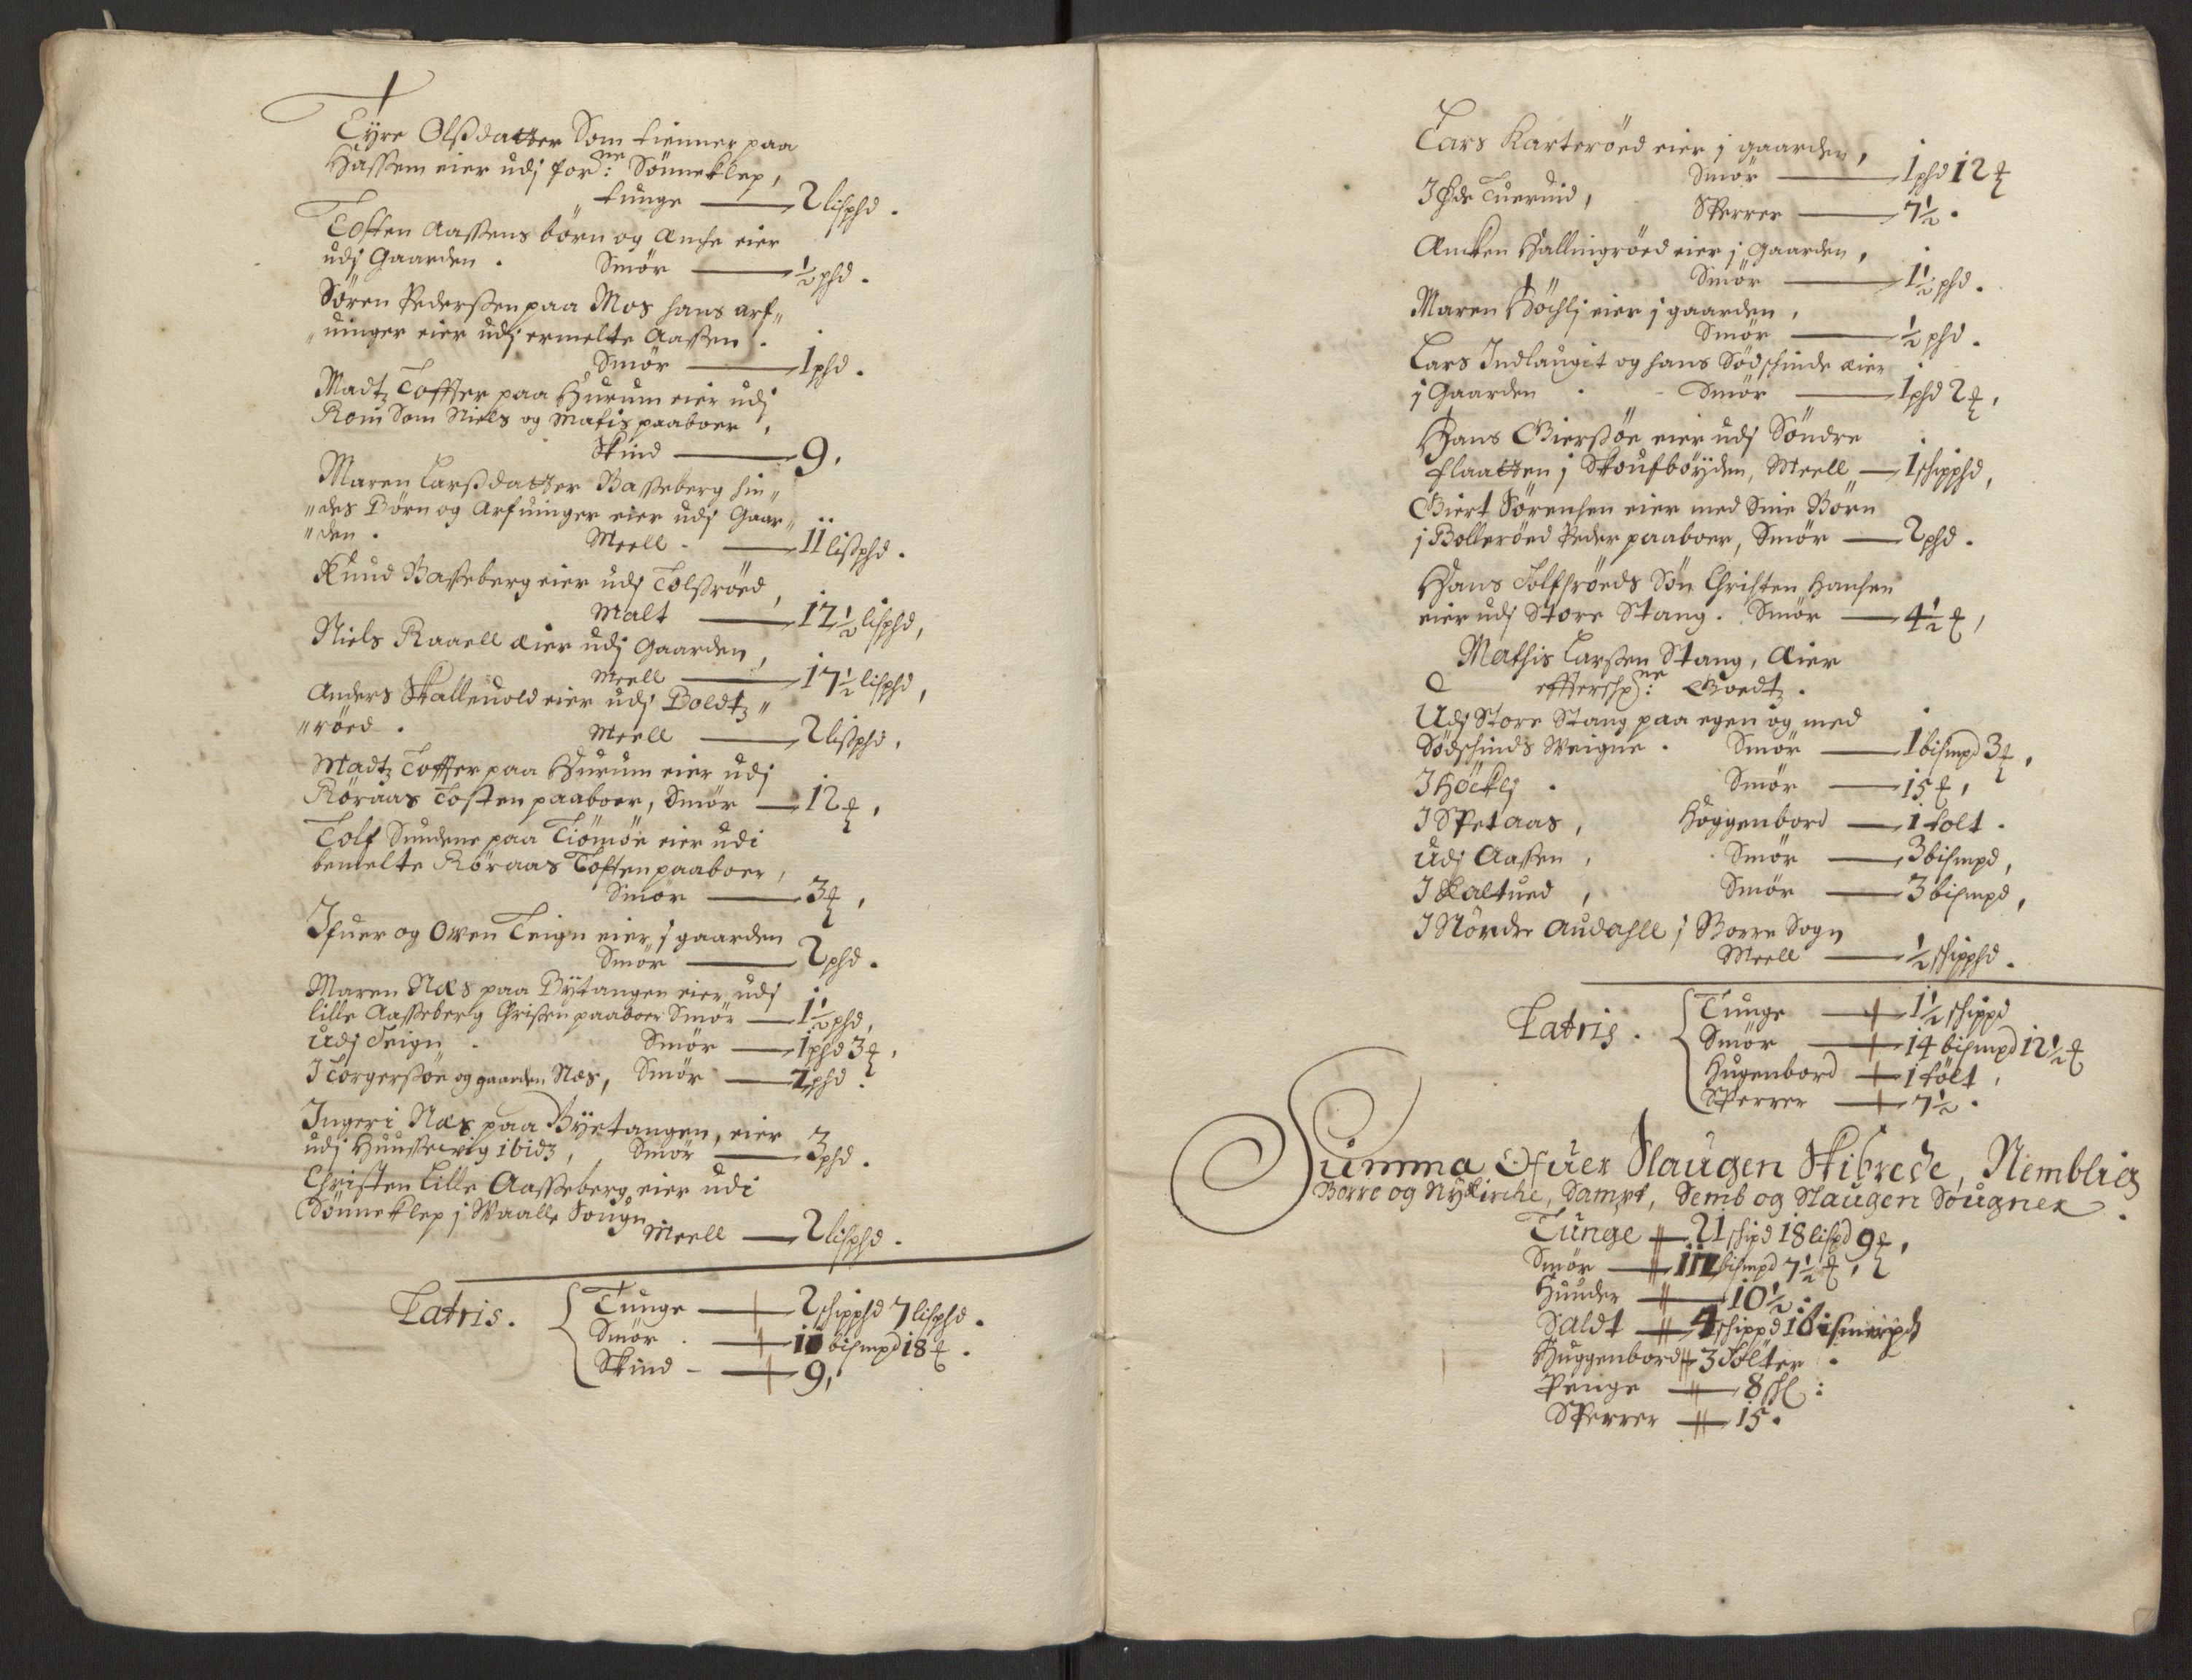 Tÿre Olßdatter Som tienner paa
Hassem eier udj for:ne Sönneklep,
tunge — 2 lisphd.
Tosten Aassens börn og Anche eier
udj Gaarden. Smör — ½ phd.
Sören Pedersen paa Mos hans arf„
„uinger eier udj ermelte Aassen.
Smör — 1 phd.
Madtz Toffter paa Hurum eier udj
Som Niels og Matis paaboer,
Skind — 9.
Maren Larßdatter Basseberg hin„
„des Börn og Arfuinger eier udj Gaar„
„den. Meell — 11 lißphd.
Knud Basseberg eier udj Tolfsröed,
Malt — 12½ lisphd,
Niels Raaell Eier udj Gaarden,
Meell — 17½ lisphd,
Anders Skalleuold eier udj Boldtz„
„röed. Meell — 2 lißphd.
Madtz Toffter paa Hurum eier udj
Röraas Tosten paaboer, Smör — 12 ℔,
Tolf Sundene paa Tiömöe eier udi
bemelte Röraas Tosten paaboer,
Smör — 3 ℔,
Ifuer og Owen Teign eier j gaarden
Smör — 2 phd.
Maren Næs paa Bÿtangen eier udj
lille Aasseberg Christen paaboer Smör — 1½ phd,
Udj Teign. Smör — 1 phd 3 ℔,
I Torgersöe og gaarden Næs, Smör — 2 phd.
Ingeri Næs paa Bÿetangen, eier
udj Hunssewig ibidz, Smör — 3 phd.
Christen Lille Aasseberg eier udi
Sönneklep j Waalle Sougn
Meell — 2 lisphd.
Latris. Tunge — 2 schipphd 7 lisphd.
Smör. — 11 bismpd 18 ℔.
Skind — 9,
Lars Karteröed eier j gaarden,
Smör — 1 phd 12 ℔
I Tueruid, Sperrer — 7½.
Ancken Hallingröed eier j Gaarden,
Smör — 1½ phd.
Maren Höchlj eier j gaarden,
Smör — ½ phd.
Lars Indlaugit og hans Södschinde eier
j Gaarden. Smör — 1 phd 2 ℔,
Hans Giersöe eier udj Söndre
Flaatten j Skoufböÿden, Meell — 1 schipphd,
Giert Sörensen eier med Sine Börn
j Bolleröed Peder paaboer, Smör — 2 phd.
Hans Tolfsröeds Sön Christen Hansen
eier udj Store Stang. Smör — 4½ ℔,
Mathis Larsen Stang, Eier
effterschr:ne Goedtz.
Udj Store Stang paa egen og med
Södschinds Weigne. Smör — 1 bismpd 3 ℔,
I Höcklj. Smör — 15 ℔,
I Spetaas, Hoggenbord — 1 tolt.
Udj Aassen, Smör — 3 bismpd,
I Skaltued, Smör — 3 bismpd,
I Nördre Audahll j Borre Sogn
Meell — ½ schipphd.
Latris. Tunge — 1½ schippd
Smör — 14 bismpd 12½ ℔
Hugenbord — 1 tölt,
Sperrer — 7½.
Summa Ofuer Slaugen Skibrede, Nemblig
Borre og Nÿkirche, Sampt, Semb og Slaugen Sougner.
Tunge — 21 schipd 18 lispd 9 ℔,
Smör — 112 bismpd 7½ ℔,
Huuder — 10½.
Saldt — 4 schippd 1 bismerpd
Huggenbord — 3 Tölter.
Penge — 8 sh:
Sperrer — 15.